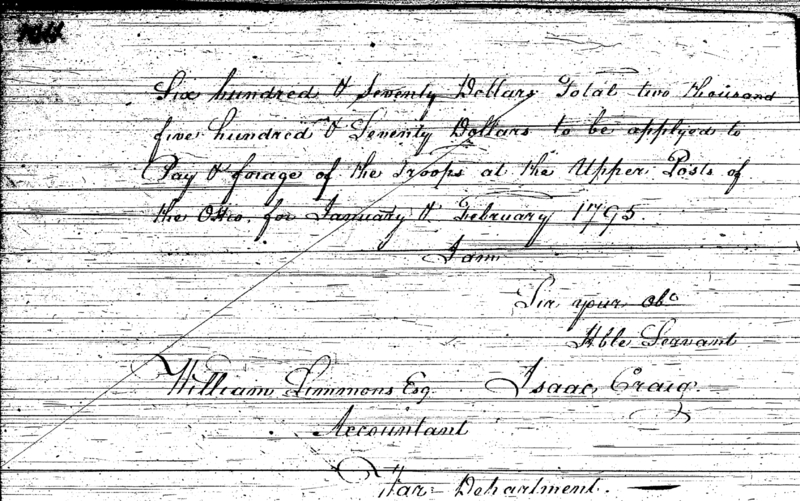 Six hundred & Seventy Dollars Total two thousand
five hundred & Seventy Dollars to be applyed to
Pay & forage of the Troops at the Upper Posts of
the Ohio, for January & February 1795.
I am
Sir your Obᵉ
Hble Servant
William Simmons Esq Isaac Craig
Accountant
War Department.